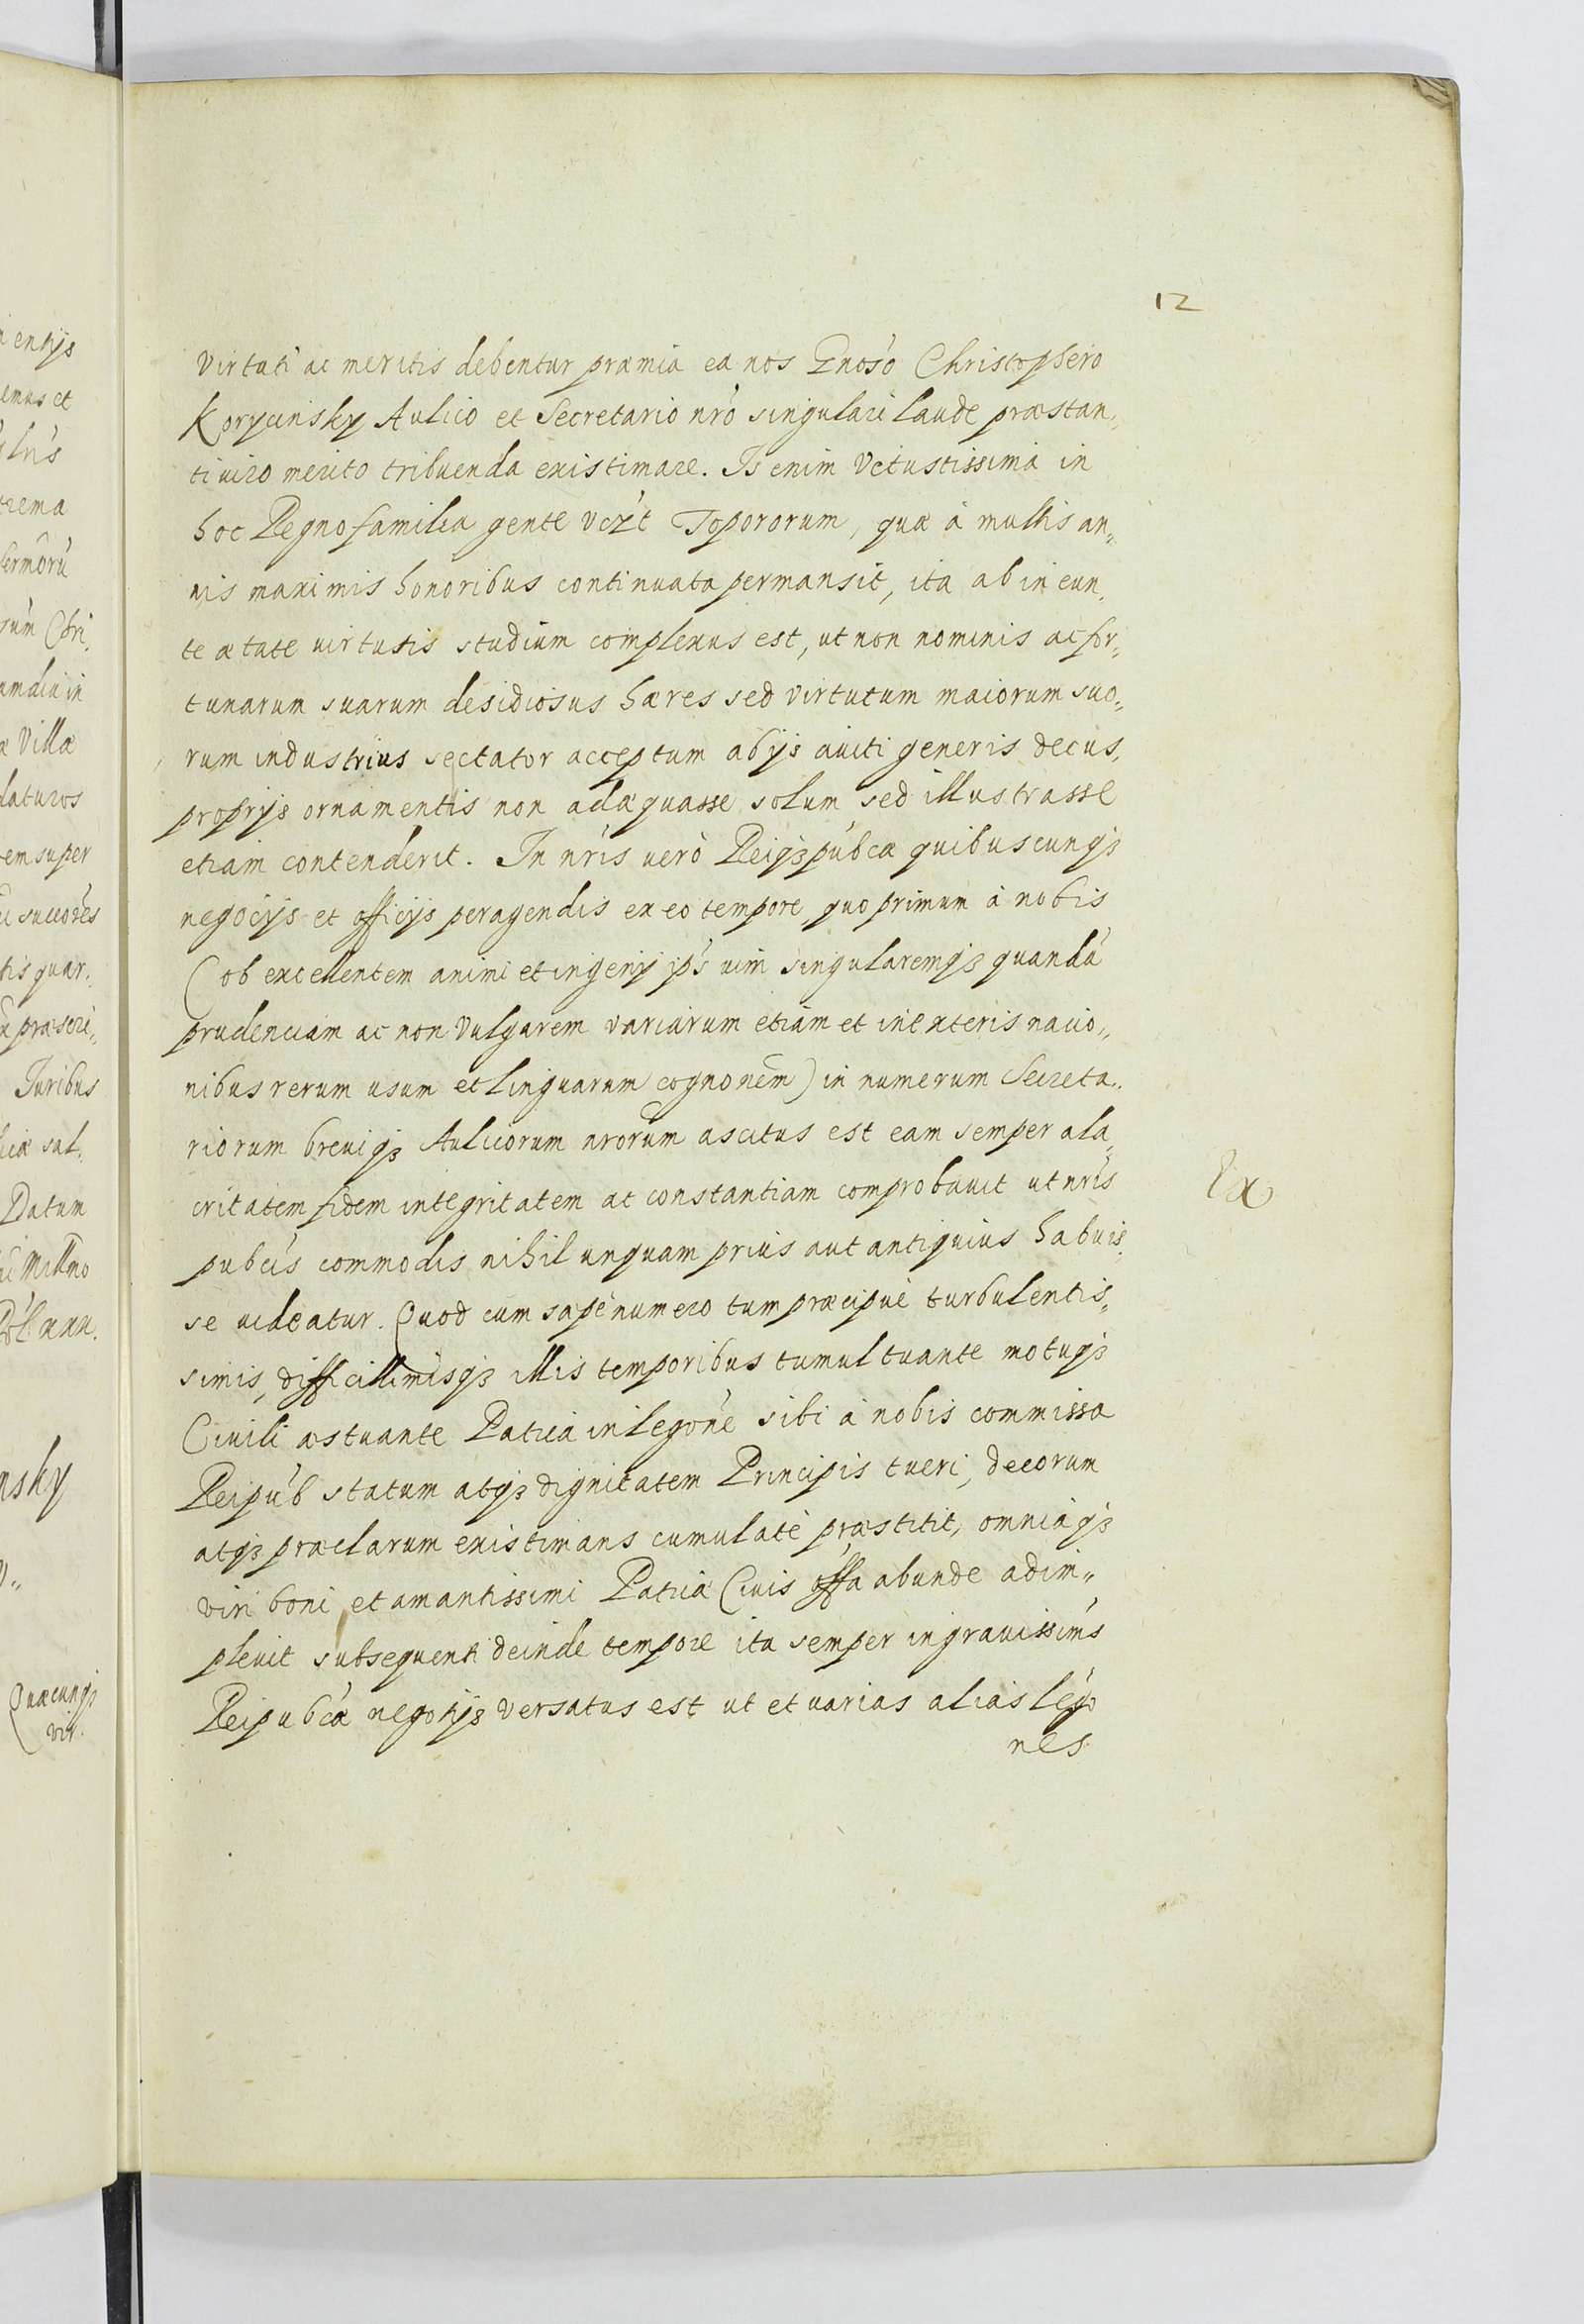 12
virtuti ac meritis debentur præmia ea nos Gnoso Christophero
Korycinsky Aulico et Secretario nro singulari laude præstan,,
ti viro merito tribuenda existimare. Is enim Vetustissima in
hoc Regno familia gente verzt Topororum, quæ à multis an,,
nis maximis honoribus continuata permansit, ita ab ineun,
te ætate virtutis studium complexus est, ut non nominis ac for,,
tunarum suarum desidiosus hæres sed virtutum maiorum suo,,
rum industrius sectator acceptum ab ijs aviti generis decus,
proprijs ornamentis non adæquasse solum sed illustrasse
etiam contenderit. In nris verò Reiqȝ pubcæ quibuscunqȝ
negocijs et officijs peragendis ex eo tempore, quo primum à nobis
(ob excellentem animi et ingenij ips vim singularemqȝ quandã
prudenciam ac non vulgarem variarum etiam et in exteris nacio,,
nibus rerum usum et linguarum cognonem) in numerum Secreta..
riorum breviqȝ Aulicorum nrorum ascitus est eam semper ala,
critatem fidem integritatem at constantiam comprobavit ut nris
pubcis commodis nihil unquam prius aut antiquius habuis,
se videatur. Quod cum sæpenumero tum præcipuè turbulentis,,
simis, difficillimisqȝ illis temporibus tumultuante motuqȝ
Civili æstuante Patria in legone sibi à nobis commissa
Reipub statum atqȝ dignitatem Principis tueri, decorum
atqȝ præclarum existimans cumulatè præstitit, omniaqȝ
viri boni et amantissimi Patriæ Civis offa abunde adim,,
plevit subsequenti deinde tempore ita semper in gravissims
Reipubcæ negotijs versatus est ut et varias alias lego
nes
entijs
emus et
trema
sermorũ
sum Chri,
æ Villæ
laturos
em super
succores
tis quar,
præscri,,
Juribus
Datum
nsky
Quæcunqȝ
vir.